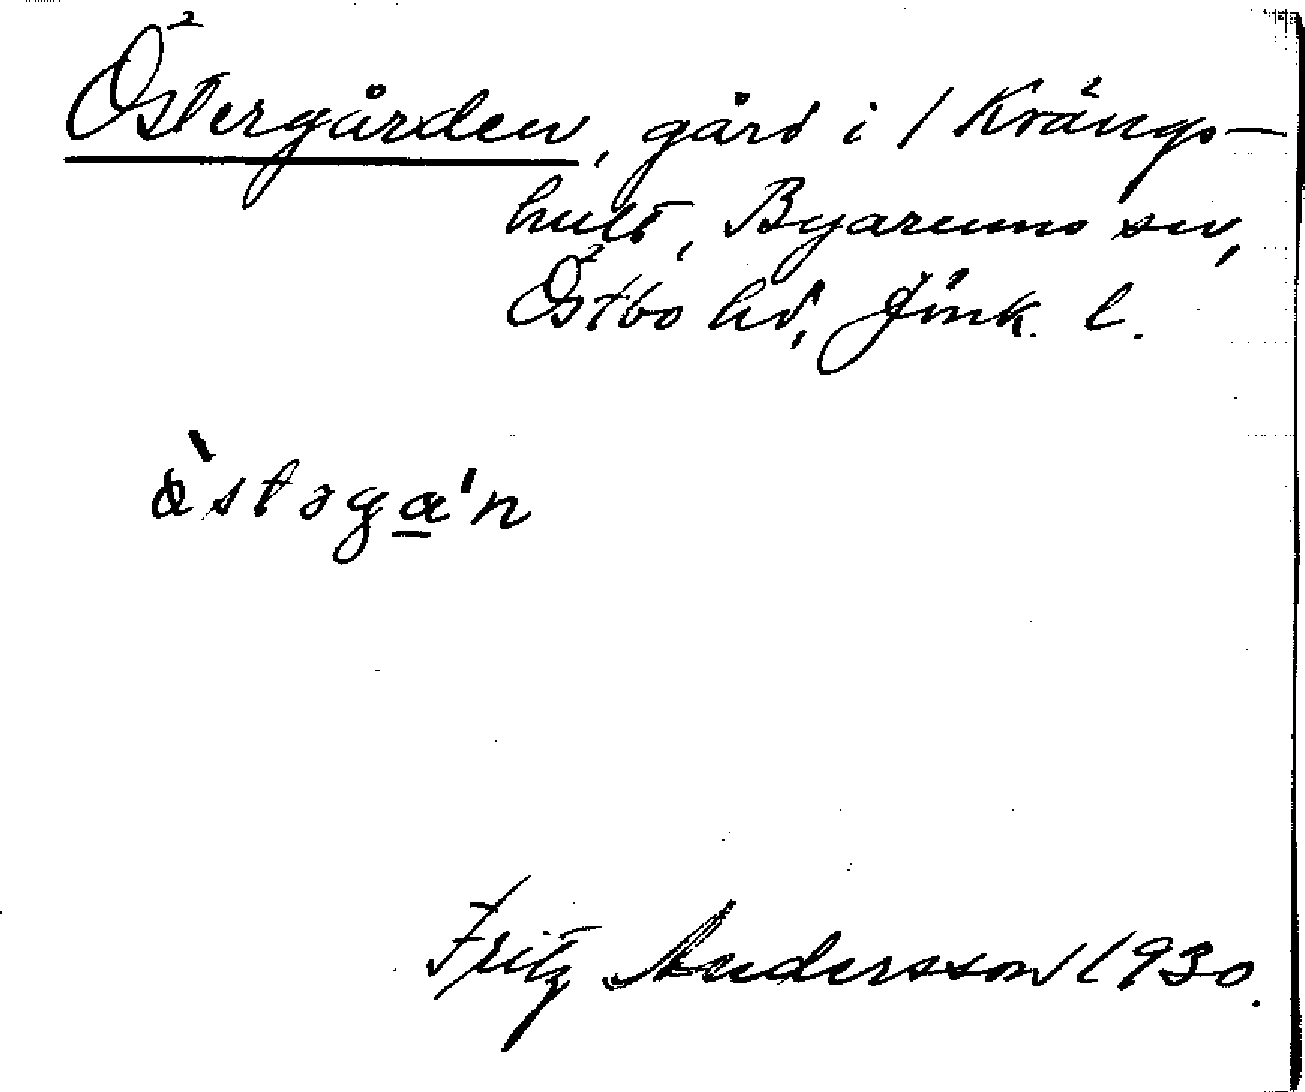 Östergården, gård i / Krängs-
hult, Byarums sn,
Östbo hd, Jönk. l.
ö̀stəga̲'n
Fritz Andersson 1930.